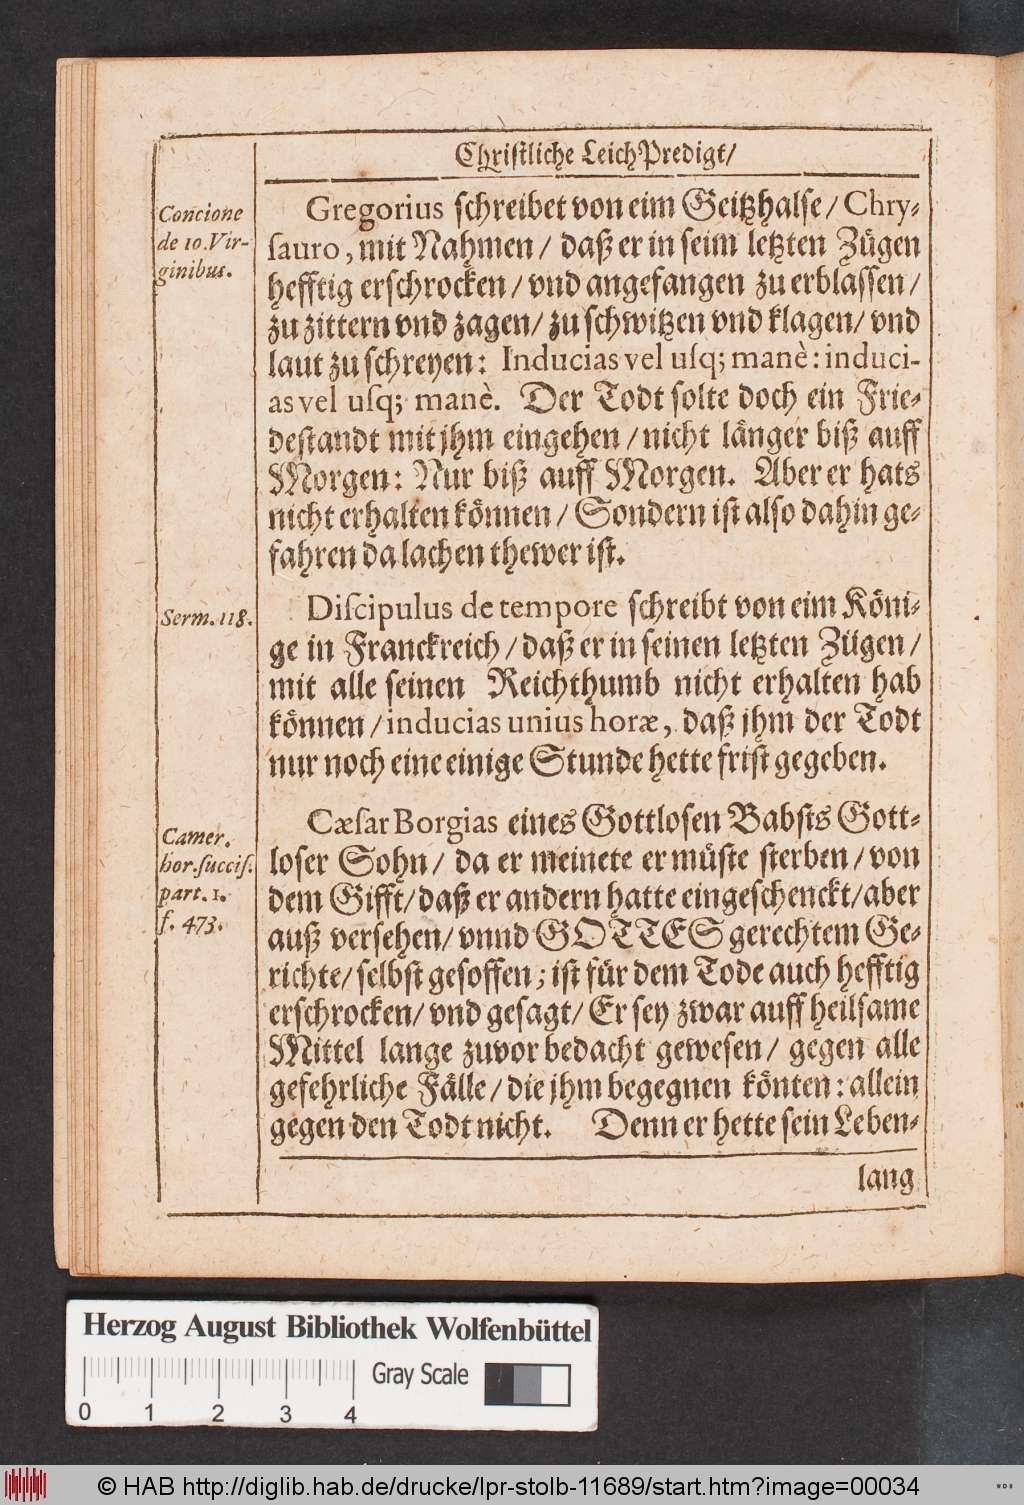 Christliche LeichPredigt/
Concione
de 10. Vir-
ginibus.
Gregorius schreibet von eim Geitzhalse/ Chry-
sauro, mit Nahmen/ daß er in seim letzten Zügen
hefftig erschrocken/ vnd angefangen zu erblassen/
zu zittern vnd zagen/ zu schwitzen vnd klagen/ vnd
laut zu schreyen: Inducias vel uſq; manè: induci-
as vel uſq; manè. Der Todt solte doch ein Frie-
destandt mit jhm eingehen/ nicht länger biß auff
Morgen: Nur biß auff Morgen. Aber er hats
nicht erhalten können/ Sondern ist also dahin ge-
fahren da lachen thewer ist.
Serm. 118.
Diſcipulus de tempore schreibt von eim Köni-
ge in Franckreich/ daß er in seinen letzten Zügen/
mit alle seinen Reichthumb nicht erhalten hab
können/ inducias unius horæ, daß jhm der Todt
nur noch eine einige Stunde hette frist gegeben.
Camer.
hor. ſucciſ.
part. 1.
f. 473.
Cæſar Borgias eines Gottlosen Babsts Gott-
loser Sohn/ da er meinete er müste sterben/ von
dem Gifft/ daß er andern hatte eingeschenckt/ aber
auß versehen/ vnnd GOTTES gerechtem Ge-
richte/ selbst gesoffen; ist für dem Tode auch hefftig
erschrocken/ vnd gesagt/ Er sey zwar auff heilsame
Mittel lange zuvor bedacht gewesen/ gegen alle
gefehrliche Fälle/ die jhm begegnen könten: allein
gegen den Todt nicht. Denn er hette sein Leben-
lang
Herzog August Bibliothek Wolfenbüttel
Gray Scale
0 1 2 3 4
© HAB http://diglib.hab.de/drucke/lpr-stolb-11689/start.htm?image=00034